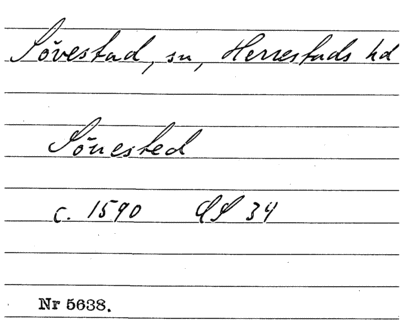 Sövestad, sn, Herrestads hd
Söuested
c. 1590 LS 34
Nr 5638.